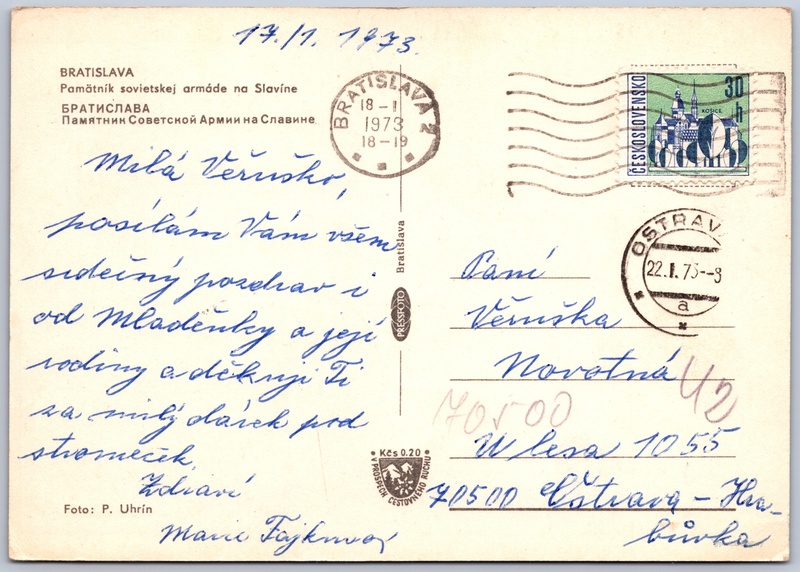 17./1. 1973.
BRATISLAVA
Pamätník sovietskej armáde na Slavíne
БРАТИСЛАВА
Памятник Советской Армии на Славине
BRATISLAVA 2
18 -I
1973
18 -19
ČESKOSLOVENSKO
30 h
KOŠICE
OSTRAVA
22.I.73--8
a
Milá Věruško,
posílám Vám všem
srdečný pozdrav i
od Mladěnky a její
rodiny a děkuji Ti
za milý dárek pod
stromeček.
Zdraví
Marie
Foto: P. Uhrín
Bratislava
PRESSFOTO
Kčs 0.20
V PROSPECH CESTOVNÉHO RUCHU
Paní
Věruška
Novotná
42
70500
U lesa 1055
70500 Ostrava - Hra-
bůvka